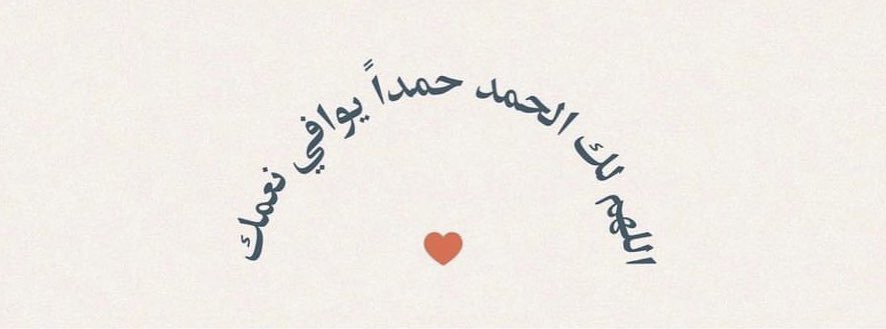 اللهم لك الحمد حمداً يوافي نعمك